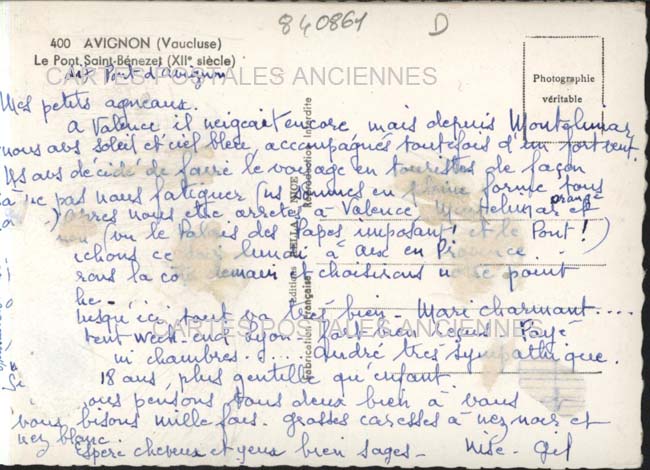 840861 D
400 AVIGNON (Vaucluse)
Le Pont Saint-Bénezet (XIIe siècle)
Pont d'Avignon
CARTES POSTALES ANCIENNES
Photographie
véritable
Mes petits agneaux.
A Valence il neigeait encore mais depuis Montélimar
nous avons soleil et ciel bleu, accompagnés toutefois d'un fort vent.
ns avons décidé de faire le voyage en touristes de façon
à ne pas nous fatiguer (ns sommes en pleine forme tous
Après nous être arrêtés à Valence, Montélimar et Orange
(vu le Palais des Papes imposant! et le Pont!)
ichons ce soir lundi à Aix en Provence
rons la co demain et choisirons notre point
Jusqu'ici tout va très bien. Mari charmant....
lent week-end Lyon. Fort bien reçus. Payé
ni chambres. ..... André très sympathique.
18 ans, plus gentille qu'enfant
ous pensons tous deux bien à vous
vous bisons mille fois. grosses caresses à nez noir et
nez blanc.
Espère cheveux et yeux bien sages -
Editions RELLA, NICE
Fabrication Française
Reproduction Interdite
CARTES POSTALES ANCIENNES